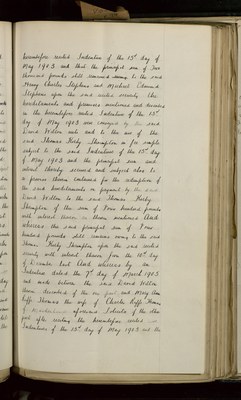 hereinbefore recited Indenture of the 13th day of
May 1903 and that the principal sum of Two
thousand pounds still remained owing to the said
Henry Charles Stephens and Michael Edmund
Stephens upon the said recited security the
hereditaments and premises mentioned and
in the hereinbefore recited Indenture of the 13th
day of May 1903 were conveyed by the said
David Wilton unto and to the use of the
said Thomas Kirby Shrimpton in fee simple
subject to the said Indenture of the 13th day
of May 1903 and the principal sum and
interest thereby secured and subject also to
a proviso therein contained for the redemption of
the said hereditaments on payment by the said
David Wilton to the said Thomas Kirby
Shrimpton of the sum of Four hundred pounds
with interest thereon as therein mentioned And
whereas the said principal sum of Four
hundred pounds still remains owing to the said
Thomas Kirby Shrimpton upon the said recited
security with interest thereon from the day
of December last And whereas by an
Indenture dated the 7th day of March 1905
and made between the said David Wilton
therein described of the one part and Mary Ann
Thomas the wife of Charles Thomas
of aforesaid Solicitor of the other
part after reciting the hereinbefore recited
Indenture of the 13th day of May 1903 and the